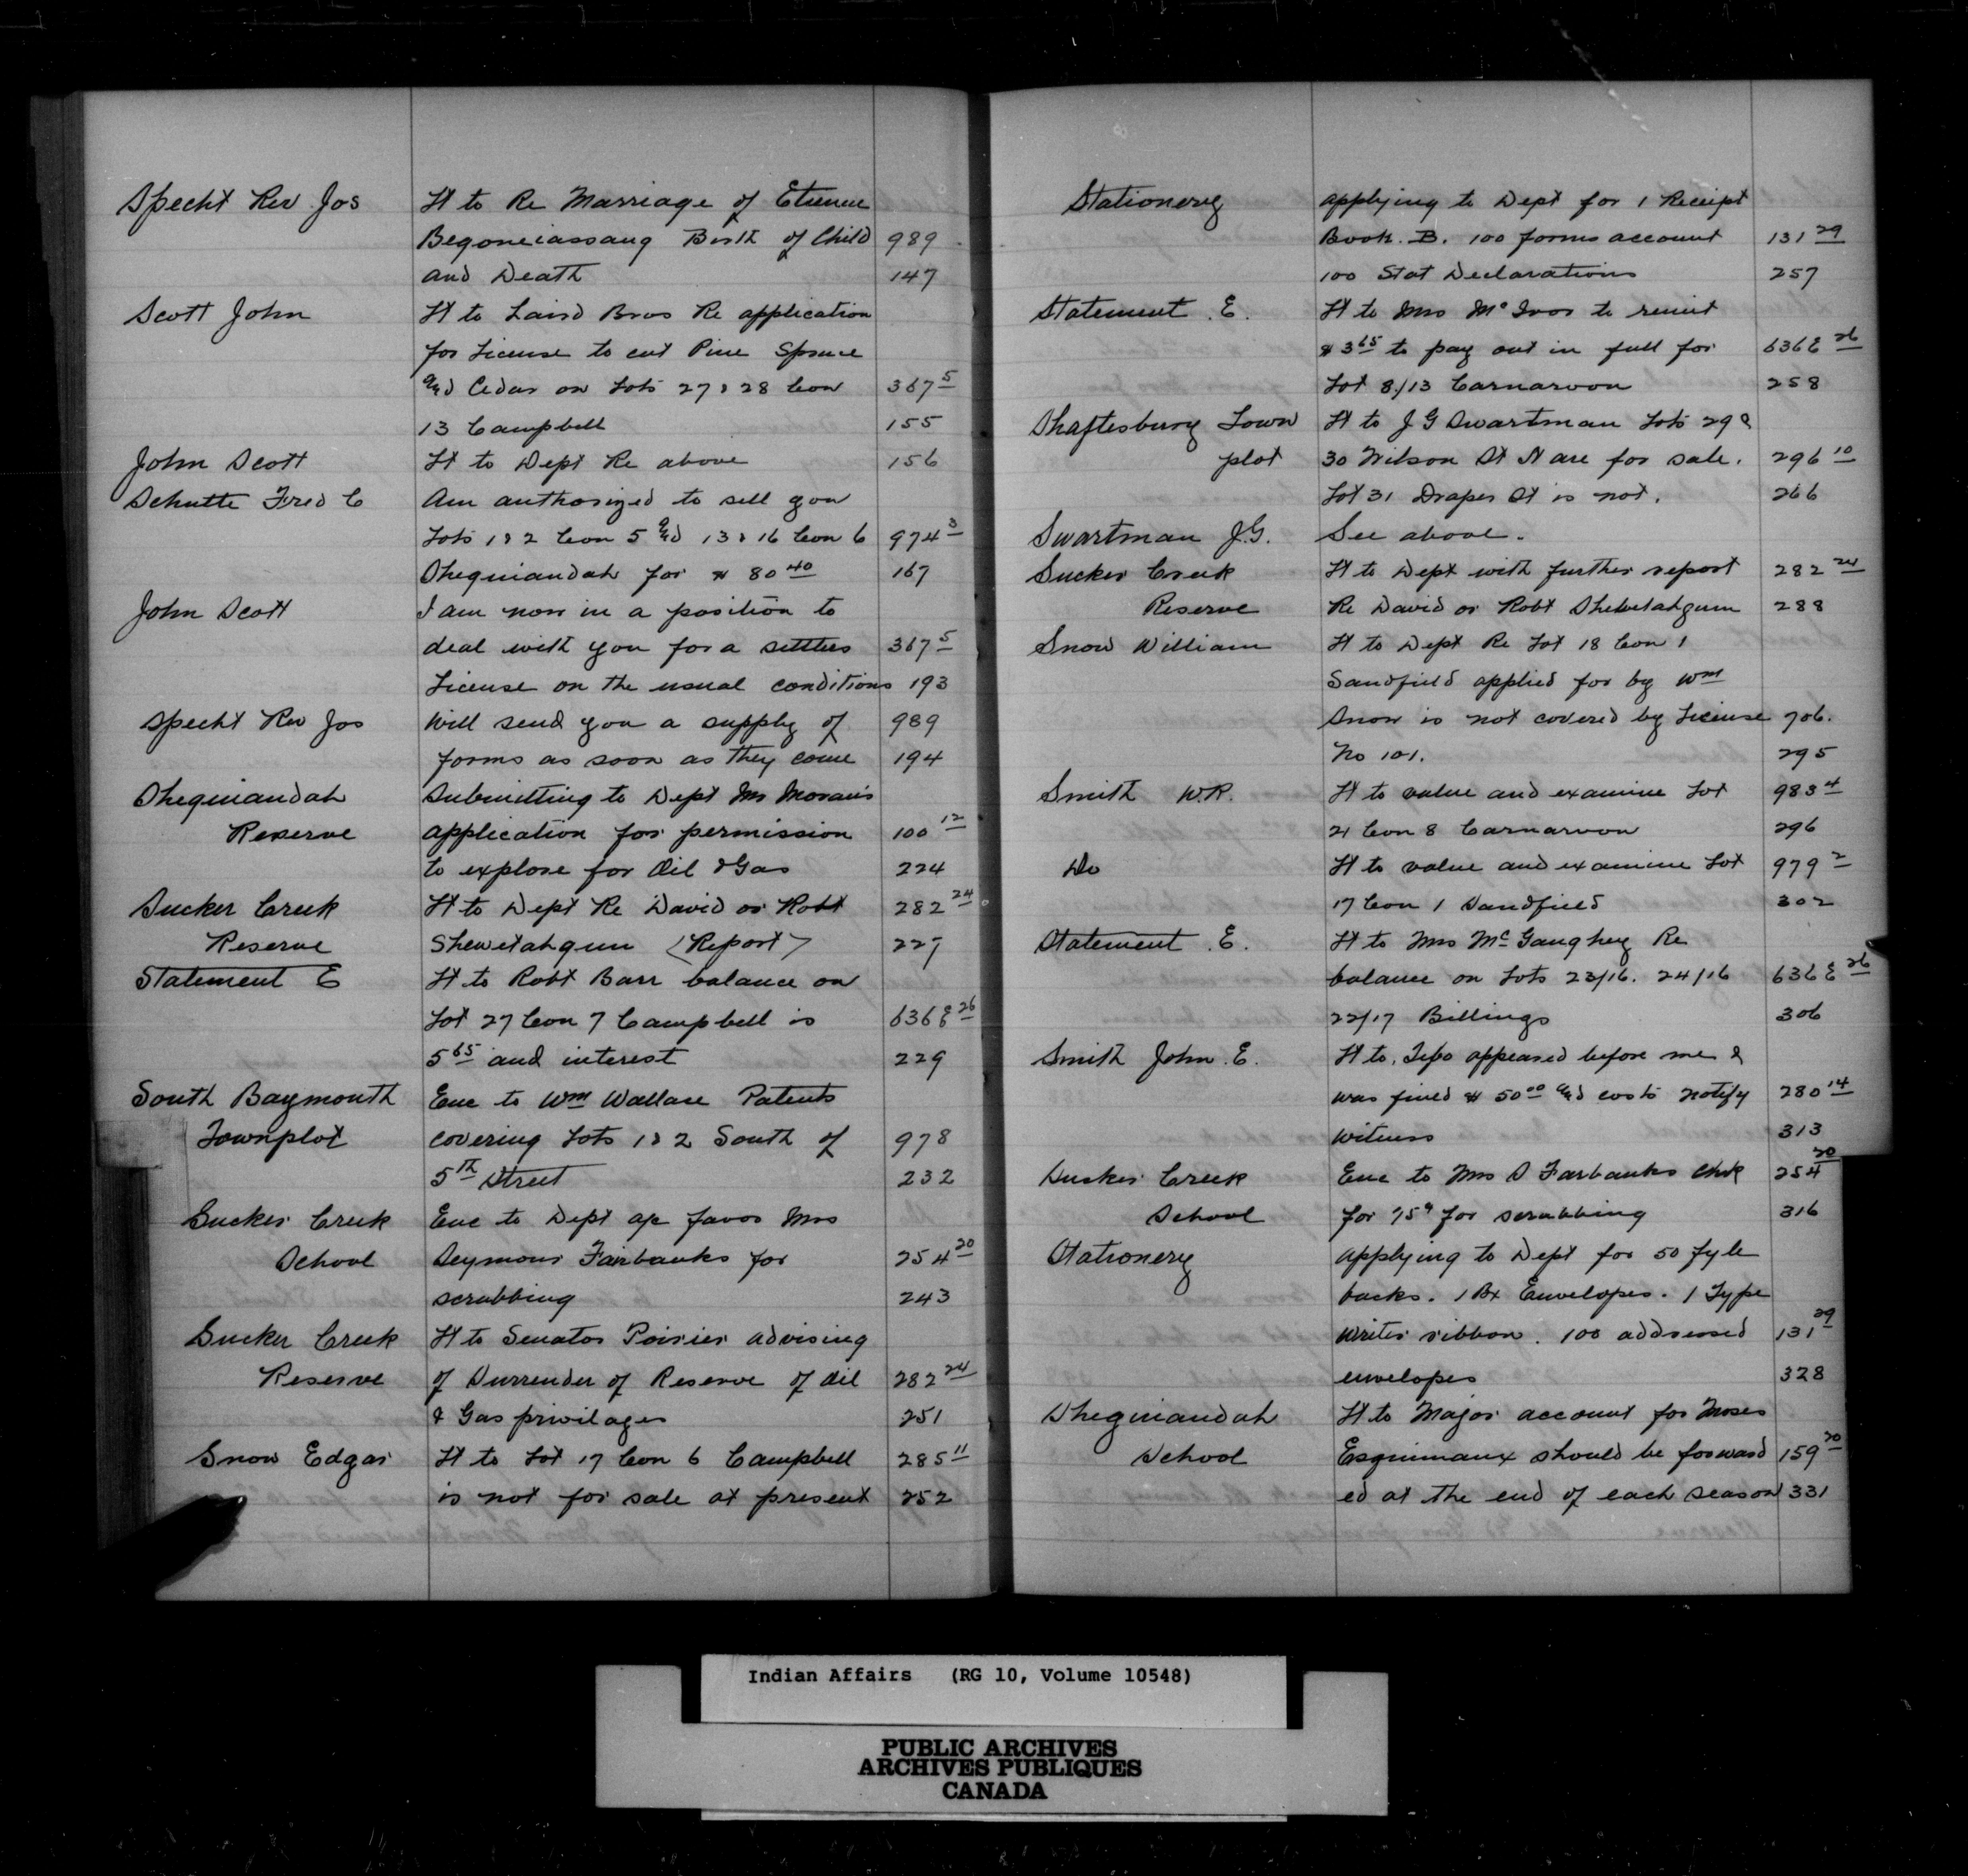 Specht Rev Jos Lt to Re Marriage of Etienne
Begoneiassang Birth of Child 989
and Death 147
Scott John Lt to Laird Bros Re application
for License to cut Pine Spruce
and Cedar on Lots 27 & 28 Con 367 5
13 Campbell 155
John Scott Lt to Dept Re above 156
Schutte Fred C Am authorized to sell you
Lots 1 & 2 Con 5 and 13 & 16 Con 6 974 3
Sheguiandah for $ 80 40 167
John Scott I am now in a position to
deal with you for a settlers 367 5
License on the usual conditions 193
Specht Rev Jos Will send you a supply of 989
forms as soon as they come 194
Sheguiandah Submitting to Dept Mr Moran's
Reserve application for permission 100 12
to explore for Oil & Gas 224
Sucker Creek Lt to Dept Re David or Robt 282 24
Reserve Shewetahgun (Report) 227
Statement E Lt to Robt Barr balance on
Lot 27 Con 7 Campbell is 636E 26
5 65 and interest 229
South Baymouth Enc to Wm Wallace Patents
Townplot covering Lots 1 & 2 South of 978
5th Street 232
Sucker Creek Enc to Dept a/c favor Mrs
School Seymour Fairbanks for 254 20
scrubbing 243
Sucker Creek Lt to Senator Poirier advising
Reserve of Surrender of Reserve of Oil 282 24
& Gas privilages 251
Snow Edgar Lt to Lot 17 Con 6 Campbell 285 11
is not for sale at present 252
Stationery applying to Dept for 1 Receipt
Book. B. 100 forms account 131 29
100 Stat Declarations 257
Statement .E. Lt to Mrs McIvor to remit
$ 3 65 to pay out in full for 636E 26
Lot 8/13 Carnarvon 258
Shaftesbury Town Lt to J G Swartman Lots 29 &
plot 30 Wilson St N are for sale. 296 10
Lot 31 Draper St is not. 266
Swartman J.G. See above.
Sucker Creek Lt to Dept with further report 282 24
Reserve Re David or Robt Shewetahgun 288
Snow William Lt to Dept Re Lot 18 Con 1
Sandfield applied for by Wm
Snow is not covered by License 706.
No 101. 295
Smith W.R. Lt to value and examine Lot 983 4
21 Con 8 Carnarvon 296
Do Lt to value and examine Lot 979 2
17 Con 1 Sandfield 302
Statement .E. Lt to Mrs McGaughey Re
balance on Lots 23/16. 24/16 636E 26
22/17 Billings 306
Smith John .E. Lt to. appeared before me &
was fined $ 50 00 and costs notify 280 14
witness 313
Sucker Creek Enc to Mrs S Farbanks chek 254 20
School for 75¢ for scrubbing 316
Stationery applying to Dept for 50 fyle
backs. 1 Bx Envelopes. 1 Type
writer ribbon. 100 addressed 131 29
envelopes 328
Sheguiandah Lt to Major account for Moses
School Esquimaux should be forward 159 20
ed at the end of each season 331
Indian Affairs (RG 10, Volume 10548)
PUBLIC ARCHIVES
ARCHIVES PUBLIQUES
CANADA